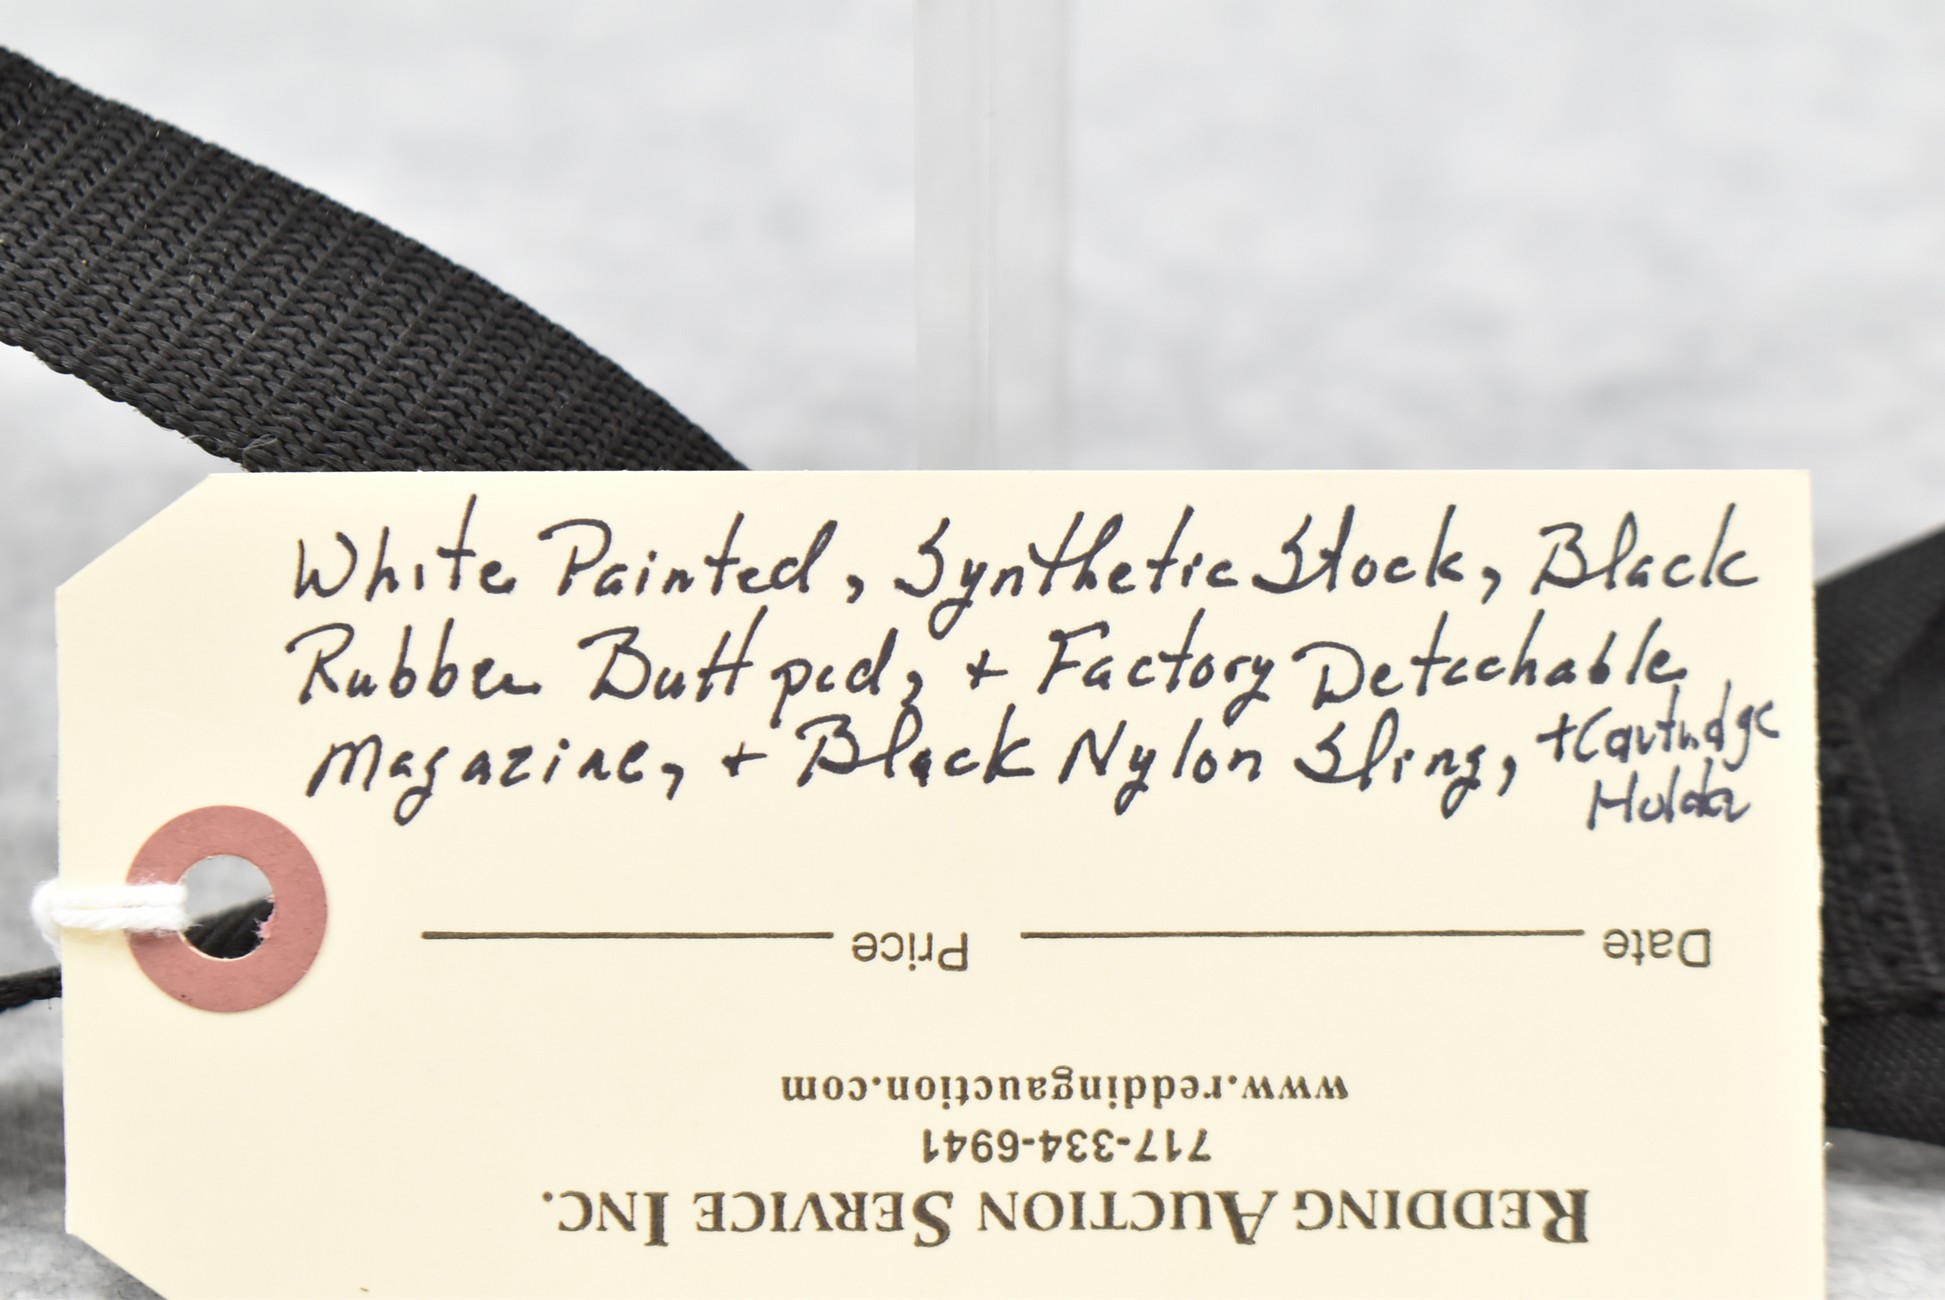 White Painted, Synthetic Stock, Black
Rubber Butt pad, + Factory Detachable
Magazine, + Black Nylon Sling, + Cartridge
Holder
Date Price
www.reddingauction.com
717-334-6941
REDDING AUCTION SERVICE INC.